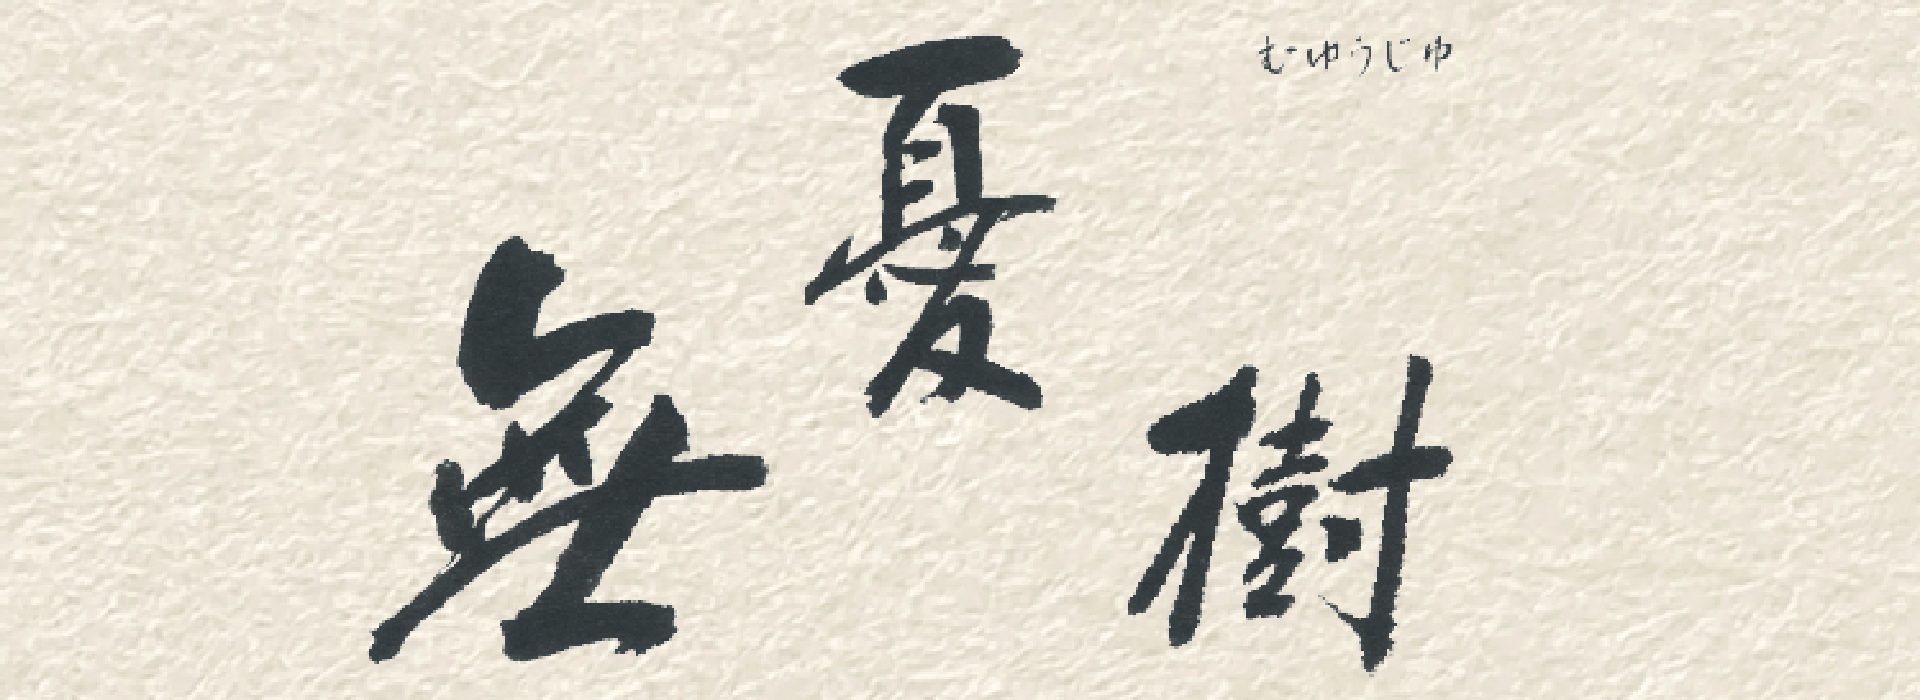 無憂樹
むゆうじゅ